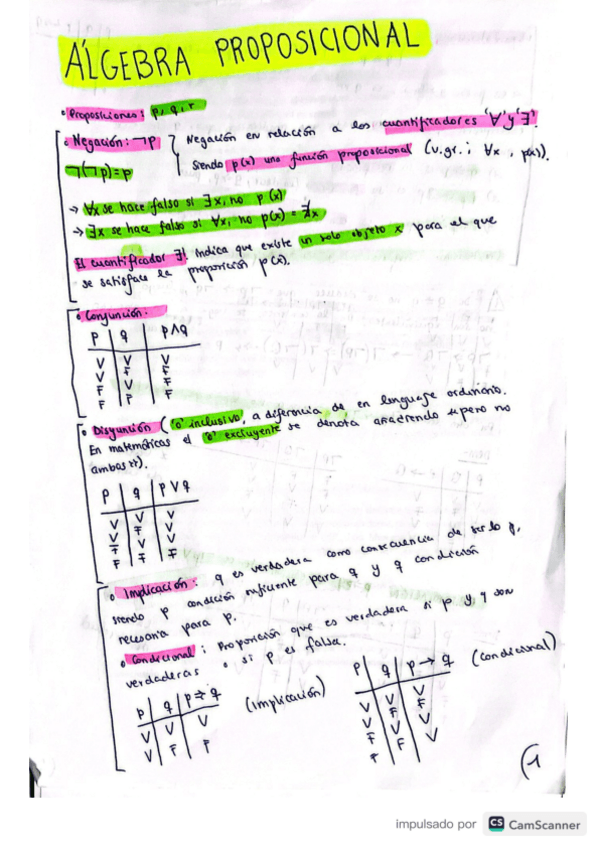 ÁLGEBRA PROPOSICIONAL
• Proposiciones: p, q, r
• Negación: ¬p } Negación en relación a los cuantificadores '∀' y '∃'.
¬(¬p)=p siendo p(x) una función proposicional (v.gr.; ∀x, p(x)).
→ ∀x se hace falso si ∃x, no p(x)
→ ∃x se hace falso si ∀x, no p(x) = ∄x
El cuantificador ∃! indica que existe un solo objeto x para al que
se satisface la proposición p(x).
• Conjunción.
p | q | p∧q
V | V | V
V | F | F
F | V | F
F | F | F
• Disyunción ('o' inclusivo, a diferencia de en lenguaje ordinario.
En matemáticas el 'o' excluyente se denota añadiendo «pero no
ambos»).
p | q | p∨q
V | V | V
V | F | V
F | V | V
F | F | F
• Implicación: q es verdadera como consecuencia de serlo p,
siendo p condición suficiente para q y q condición
necesaria para p.
• Condicional: Proposición que es verdadera si p y q son
verdaderas o si p es falsa.
p | q | p⇒q (Implicación)
V | V | V
V | F | F
p | q | p→q (Condicional)
V | V | V
V | F | F
F | V | V
F | F
(1
impulsado por CS CamScanner